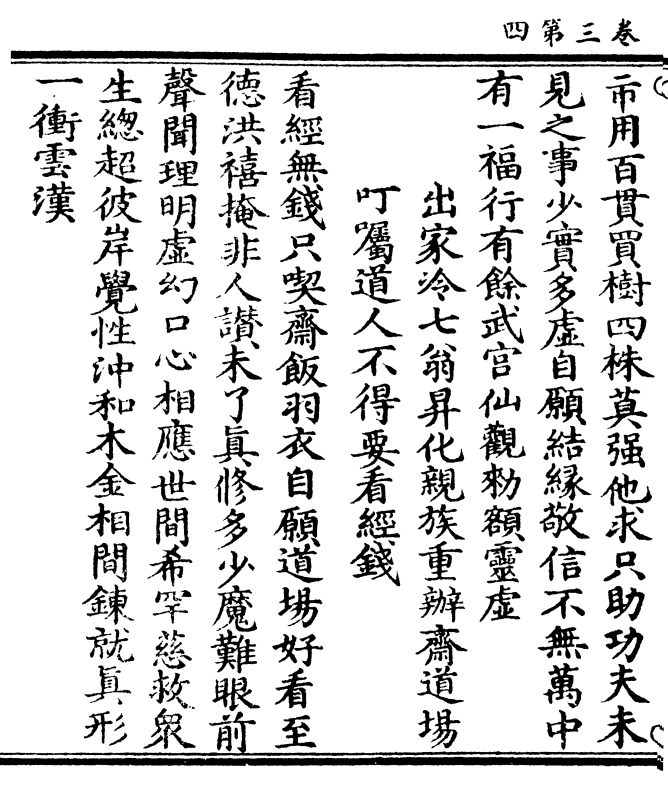 卷三第四
帀用百貫買樹四株莫强他求只助功夫未
見之事少實多虛自願結緣敬信不無萬中
有一福行有餘武宫仙觀勑額靈虛
出家泠七翁昇化親族重辦齋道場
叮囑道人不得要看經錢
看經無錢只喫齋飯羽衣自願道場好看至
德洪禧掩非人讃未了眞修多少魔難眼前
聲聞理明虛幻口心相應世間希罕慈救衆
生緫超彼岸覺性沖和木金相間鍊就眞形
一衝雲漢